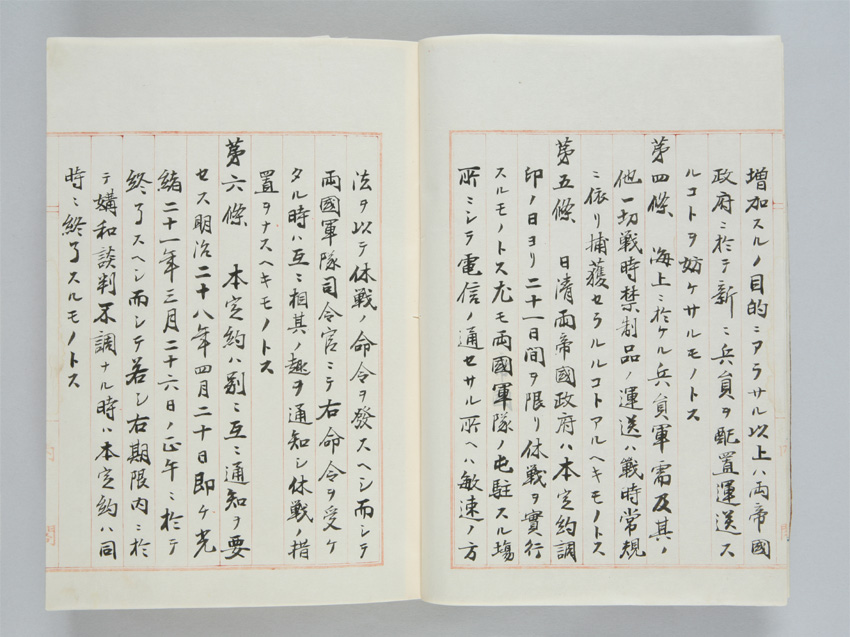 增加スルノ目的ニアラサル以上ハ両帝國
政府ニ於テ新ニ兵員ヲ配置運送ス
ルコトヲ妨ケサルモノトス
第四條　海上ニ於ケル兵員軍需及其ノ
他一切戦時禁制品ノ運送ハ戦時常規
ニ依リ捕獲セラルルコトアルヘキモノトス
第五條　日清両帝國政府ハ本定約調
印ノ日ヨリ二十一日間ヲ限リ休戦ヲ實行
スルモノトス尤モ両國軍隊ノ屯駐スル塲
所ニシテ電信ノ通セサル所ヘハ敏速ノ方
法ヲ以テ休戦ノ命令ヲ發スヘシ而シテ
両國軍隊司令官ニテ右命令ヲ受ケ
タル時ハ互ニ相其ノ趣ヲ通知シ休戦ノ措
置ヲナスヘキモノトス
第六條　本定約ハ別ニ互ニ通知ヲ要
セス明治二十八年四月二十日即ケ光
緒二十一年三月二十六日ノ正午ニ於テ
終了スヘシ而シテ若シ右期限内ニ於
テ媾和談判不調ナル時ハ本定約ハ同
時ニ終了スルモノトス
内閣